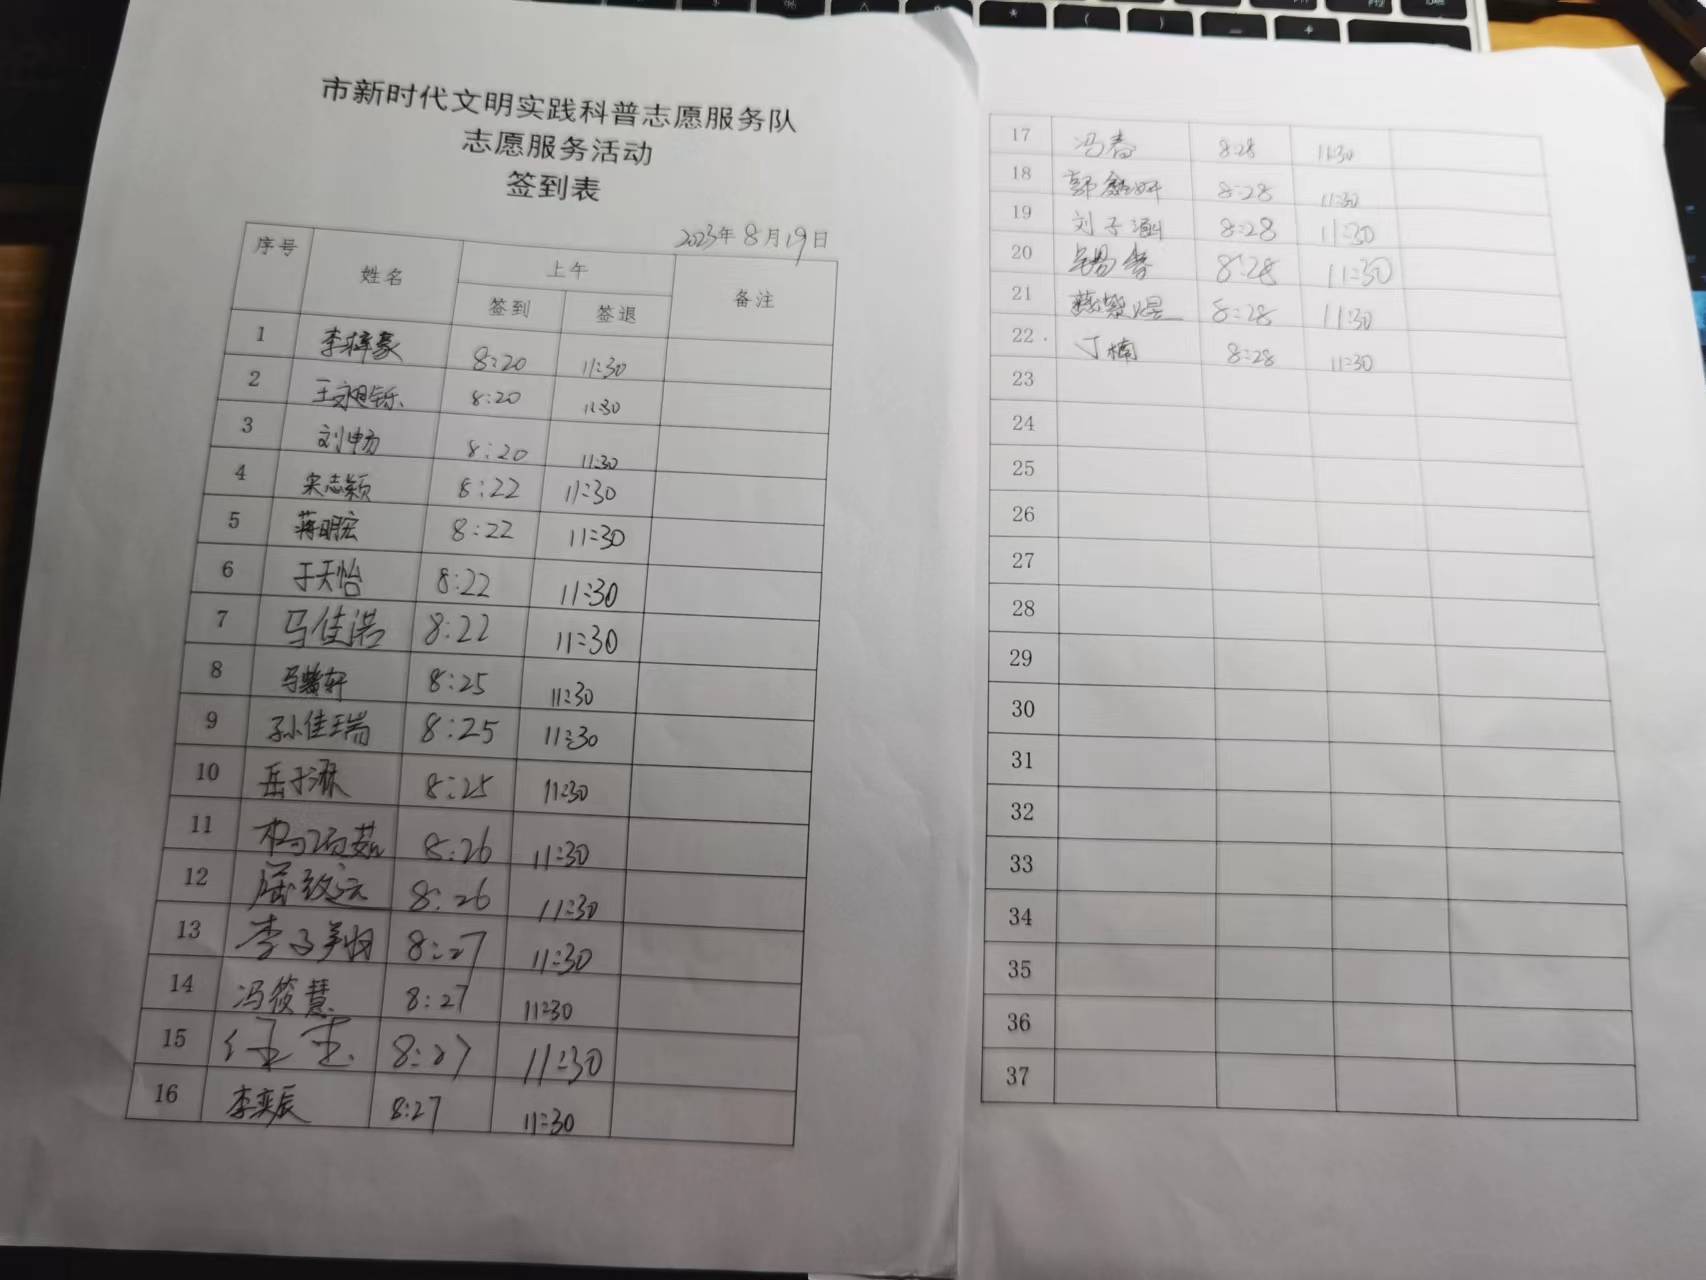 市新时代文明实践科普志愿服务队
志愿服务活动
签到表
2023年8月19日
序号 姓名 上午 备注
签到 签退
1 李梓豪 8:20 11:30
2 8:20 11:30
3 刘畅 8:20 11:30
4 宋志颖 8:22 11:30
5 蒋明宏 8:22 11:30
6 于天怡 8:22 11:30
7 马佳浩 8:22 11:30
8 8:25 11:30
9 孙佳瑞 8:25 11:30
10 岳子淋 8:25 11:30
11 8:26 11:30
12 屈致远 8:26 11:30
13 李子翔 8:27 11:30
14 冯筱慧 8:27 11:30
15 8:27 11:30
16 李奕辰 8:27 11:30
17 冯春 8:28 11:30
18 8:28 11:30
19 刘子涵 8:28 11:30
20 8:28 11:30
21 8:28 11:30
22 丁楠 8:28 11:30
23
24
25
26
27
28
29
30
31
32
33
34
35
36
37